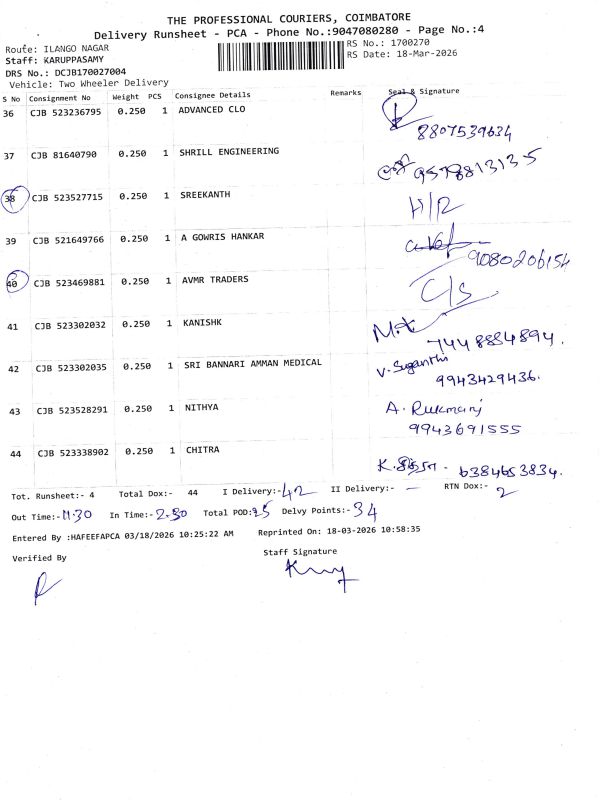 THE PROFESSIONAL COURIERS, COIMBATORE
Delivery Runsheet - PCA - Phone No.:9047080280 - Page No.:4
Route: ILANGO NAGAR
RS No.: 1700270
Staff: KARUPPASAMY
RS Date: 18-Mar-2026
DRS No.: DCJB170027004
Vehicle: Two Wheeler Delivery
S No Consignment No Weight PCS Consignee Details Remarks Seal & Signature
36 CJB 523236795 0.250 1 ADVANCED CLO
8807539634
37 CJB 81640790 0.250 1 SHRILL ENGINEERING
9578813135
38 CJB 523527715 0.250 1 SREEKANTH H/R
39 CJB 521649766 0.250 1 A GOWRIS HANKAR
9080206154
40 CJB 523469881 0.250 1 AVMR TRADERS C/S
41 CJB 523302032 0.250 1 KANISHK
7448884894.
42 CJB 523302035 0.250 1 SRI BANNARI AMMAN MEDICAL V. Suganthi
9943429436.
43 CJB 523528291 0.250 1 NITHYA A. Rukmani
9943691555
44 CJB 523338902 0.250 1 CHITRA
K. சித்ரா - 6384653834.
Tot. Runsheet:- 4 Total Dox:- 44 I Delivery:- 42 II Delivery:- – RTN Dox:- 2
Out Time:- 11.30 In Time:- 2.30 Total POD: 25 Delvy Points:- 34
Entered By :HAFEEFAPCA 03/18/2026 10:25:22 AM Reprinted On: 18-03-2026 10:58:35
Verified By Staff Signature